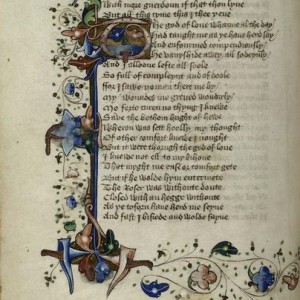 With rage guerdoun if that thou lyue
But all this tyme this I thee yeue
The god of loue whanne al the day
Had taught me as ye haue herd say
And enfourmed compendiously
He vanyshide awey all sodeynly
And I alloone lefte all soole
So full of compleynt and of doole
For I sawe no man there me by
My woundes me greued wondirly
Me forto curen no thyng I knewe
Save the bothom bright of hewe
Wheron was sett hoolly my thought
Of other comfort knewe I nought
But it were thorugh the god of loue
I knewe not ell to my bihoue
That myght me ease or comfort gete
But if he wolde hym entermete
The Roser was withoute doute
Closed with an hegge withoute
As ye toforn haue herd me seyne
And fast I bisiede and wolde fayne